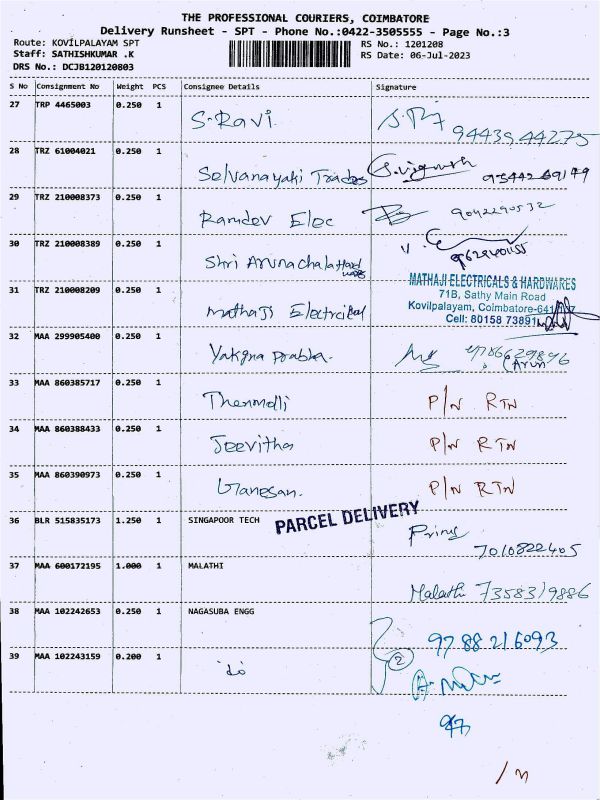 THE PROFESSIONAL COURIERS, COIMBATORE
Delivery Runsheet - SPT - Phone No.:0422-3505555 - Page No.:3
Route: KOVILPALAYAM SPT
RS No.: 1201208
Staff: SATHISHKUMAR .K
RS Date: 06-Jul-2023
DRS No.: DCJB120120803
S No Consignment No Weight PCS Consignee Details Signature
27 TRP 4465003 0.250 1 S.Ravi. 94439 44275
28 TRZ 61004021 0.250 1 Selvanayaki Trades
29 TRZ 210008373 0.250 1 Ramdev Elec 9042290532
30 TRZ 210008389 0.250 1 Shri Arunachala Hard
31 TRZ 210008209 0.250 1 Mathaji Electrical
MATHAJI ELECTRICALS & HARDWARES
71B, Sathy Main Road
Kovilpalayam, Coimbatore-641
Cell: 80158 73891
32 MAA 299905400 0.250 1 Yakgna Prabha.
(Arun)
33 MAA 860385717 0.250 1 Thenmolli P/N RTN
34 MAA 860388433 0.250 1 Jeevitha P/N RTN
35 MAA 860390973 0.250 1 Ganesan. P/N RTN
PARCEL DELIVERY
36 BLR 515835173 1.250 1 SINGAPOOR TECH
7010822405
37 MAA 600172195 1.000 1 MALATHI Malathi 7358319886
38 MAA 102242653 0.250 1 NAGASUBA ENGG 9788216093
39 MAA 102243159 0.200 1 do 2